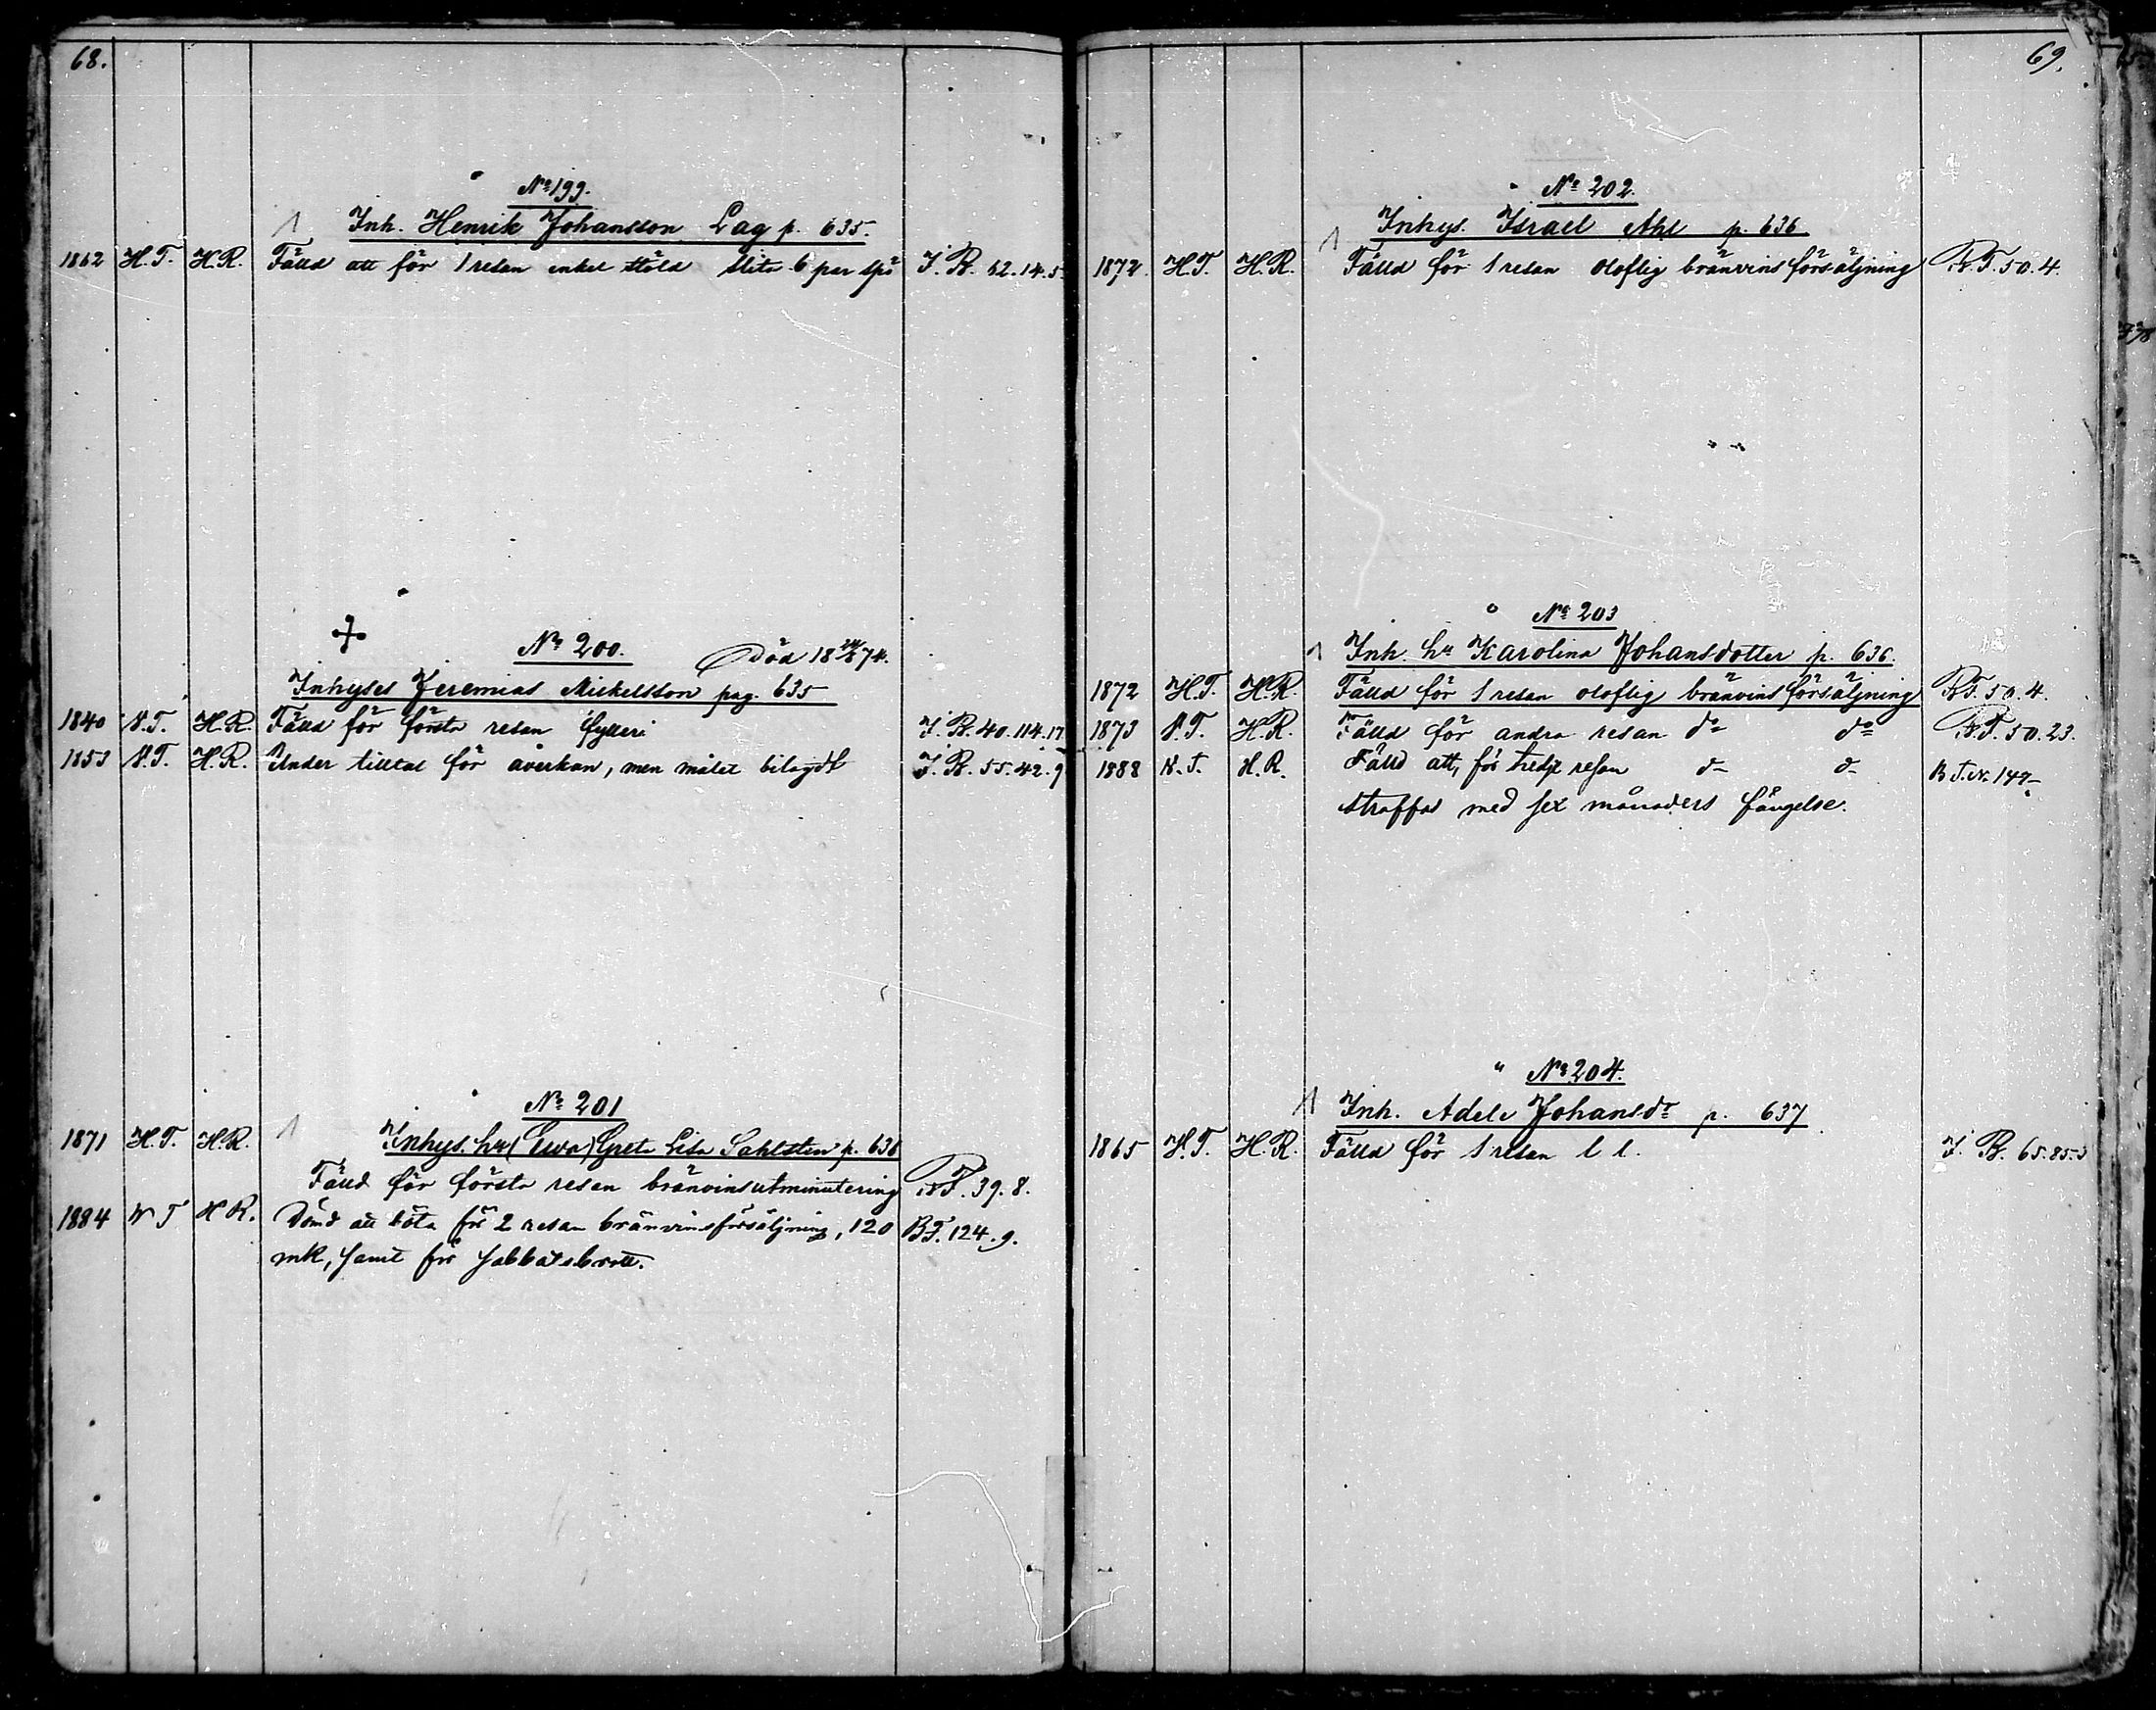 68.
Nº 199.
Inh. Henrik Johansson Lag p. 635.
1862 H.T. H.R. Fälld att för 1 resan enkel stöld slita 6 par spö J. B. 62.14.5
Nº 200. Död 18 24/8 74.
Inhyses Jeremias Mickelsson pag. 635
1840 V.T. H.R. Fälld för första resan fylleri J. B. 40.114.17
1853 V.T. H.R. Under tilltal för åverkan, men målet bilagdt J. B. 55.42.9
Nº 201
1871 H.T. H.R. Inhys. hu (Ewa) Greta Lisa Sahlsten p. 636
Fälld för första resan bränvinsutminutering B.T. 39.8.
1884 V T H R. Dömd att böta för 2 resan bränvinsförsäljning, 120 B.T. 124.9.
mk, samt för sabbatsbrott.
69.
Nº 202.
Inhys. Israel Ahl p. 636
1872. H.T. H.R. Fälld för 1 resan oloflig bränvinsförsäljning B.T. 50.4.
Nº 203
Inh. hu Karolina Johansdotter p. 636.
1872 H.T. H.R. Fälld för 1 resan oloflig bränvinsförsäljning B.T. 50.4.
1873 V.T. H.R. Fälld för andra resan dº dº B.T. 50.23.
1888 V.T. H.R. Fälld att, för tredje resan d- d- B.T. N. 147-
straffas med sex månaders fängelse.
Nº 204.
Inh. Adele Johansdr p. 637
1865 H.T. H.R. Fälld för 1 resan l l. J. B. 65.85.3